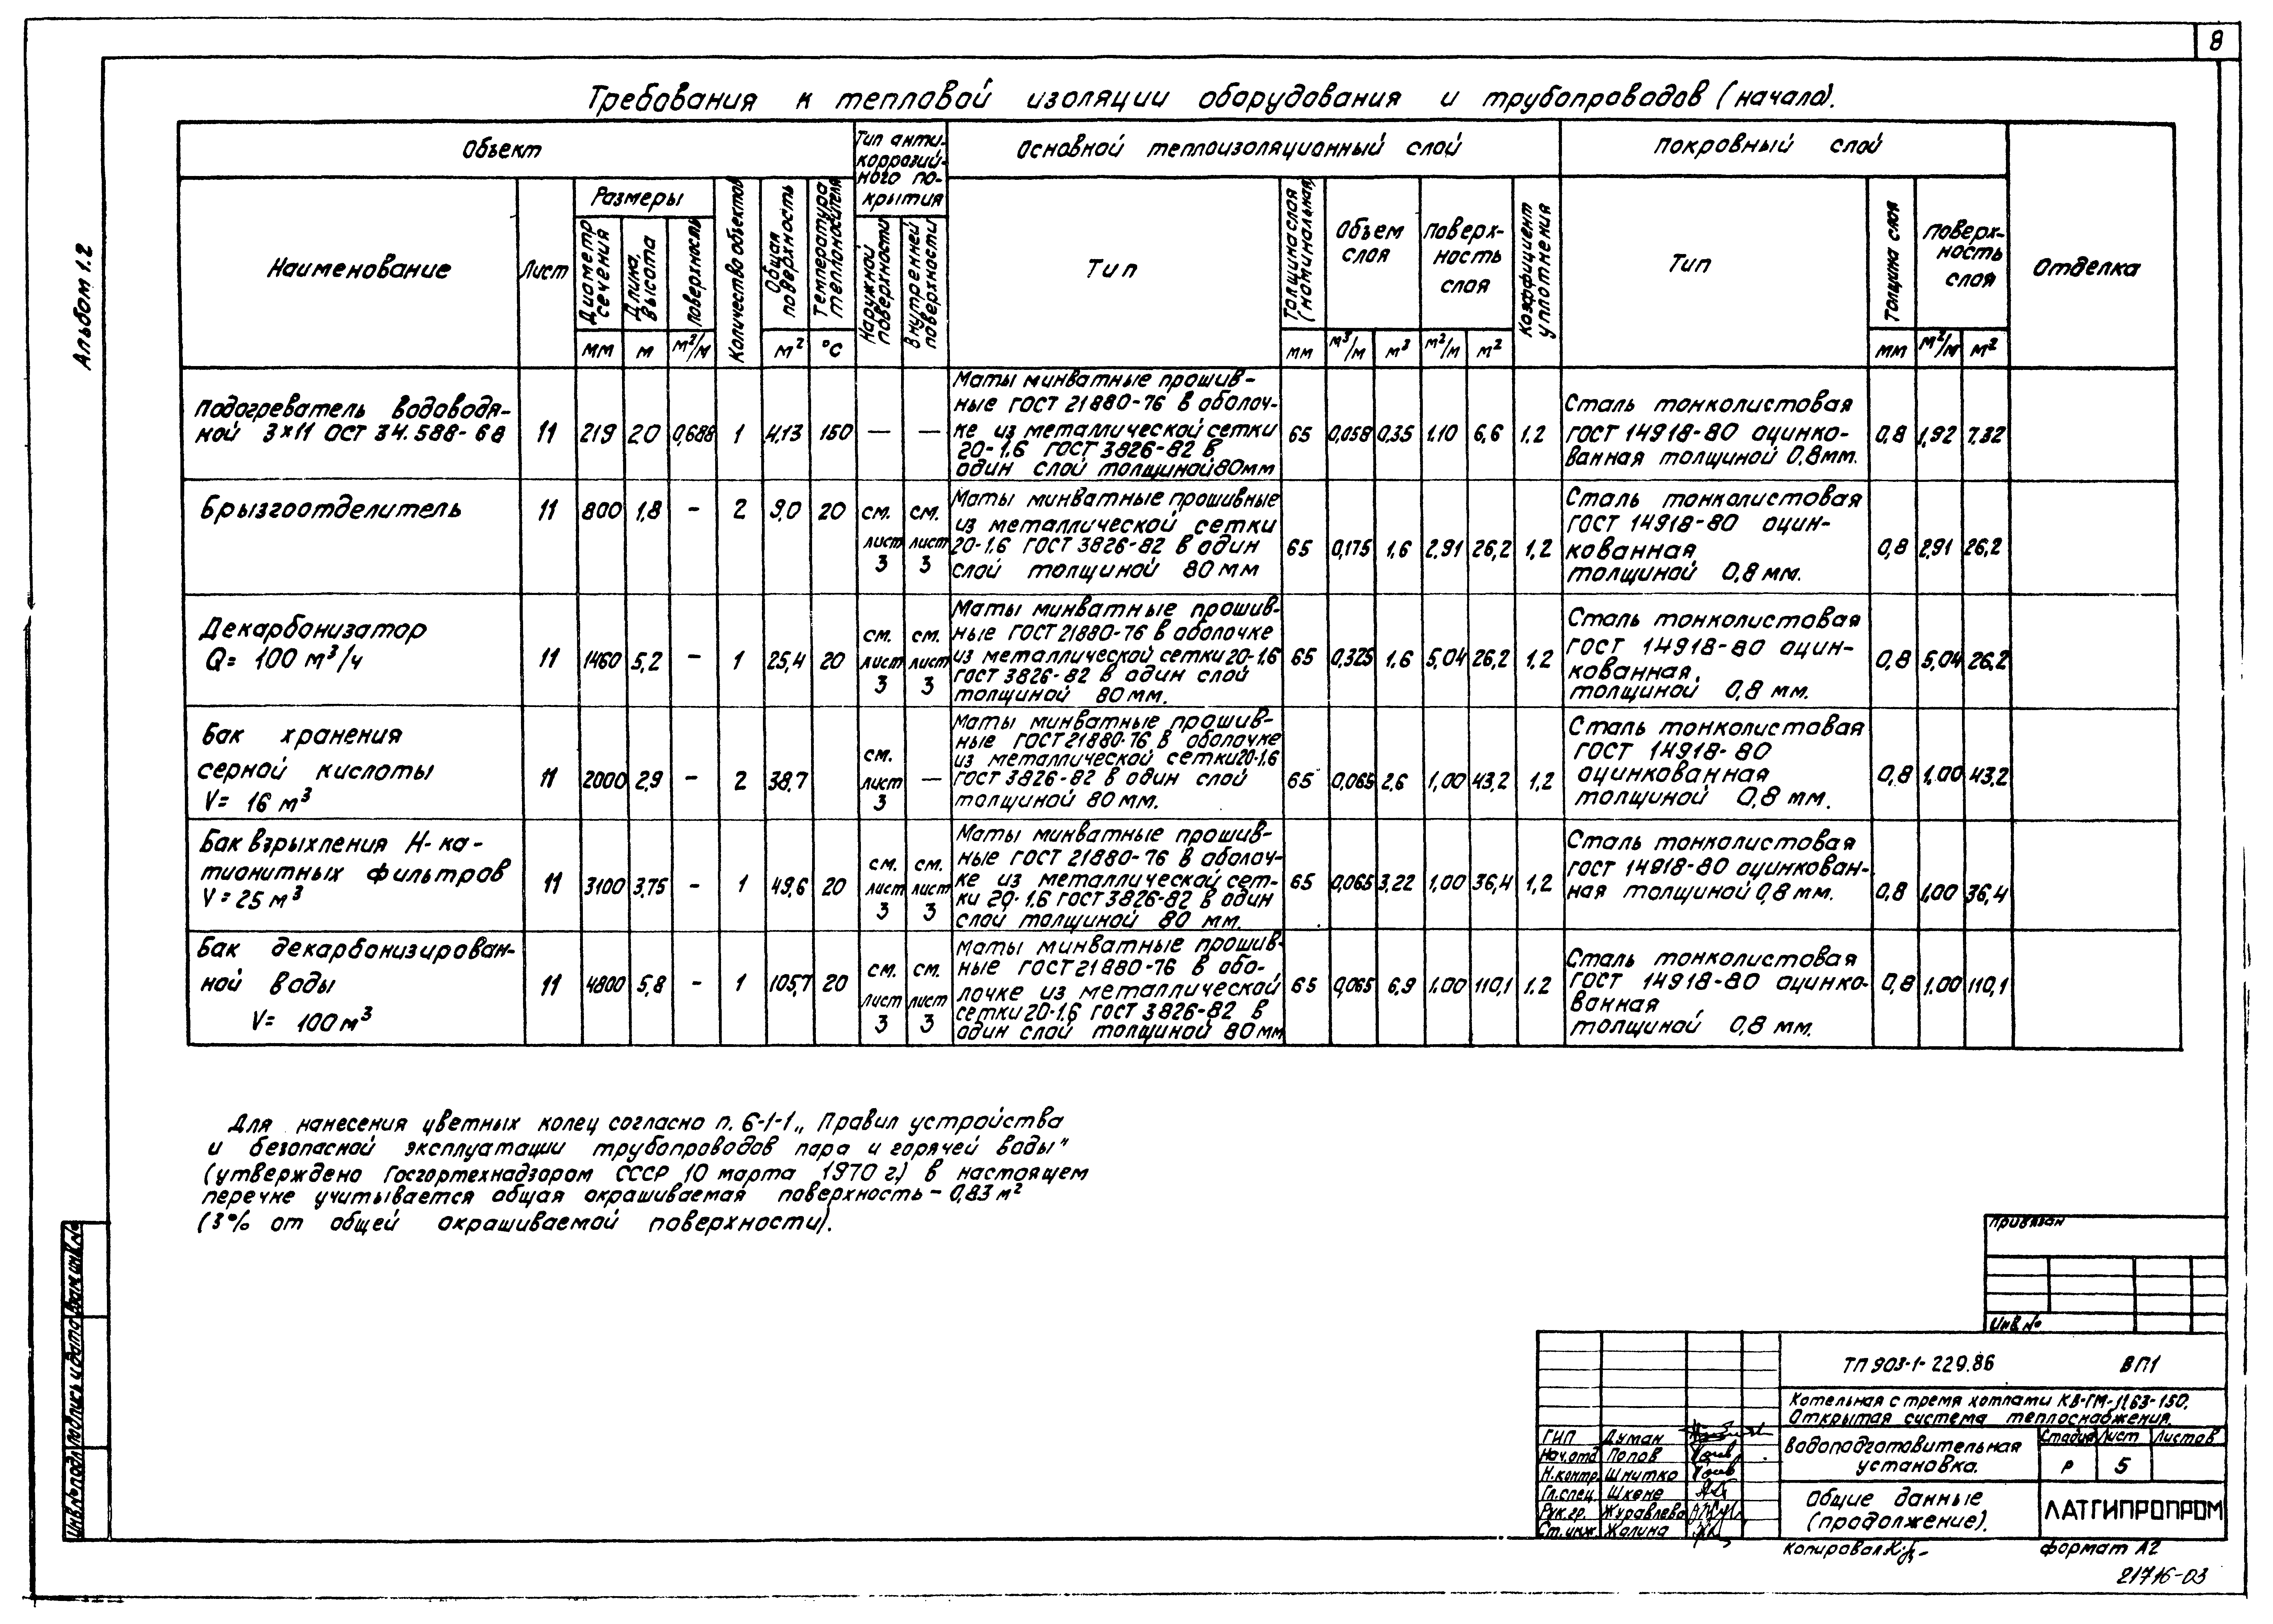 8
Альбом 1.2
Требования к тепловой изоляции оборудования и трубопроводов (начало).
Объект
Тип анти-
коррозий-
ного по-
крытия
Основной теплоизоляционный слой
Покровный слой
Отделка
Наименование
Лист
Размеры
Диаметр сечения
Длина, высота
Поверхность
Количество объектов
Общая поверхность
Температура теплоносителя
Наружной поверхности
Внутренней поверхности
Тип
Толщина слоя (номинальная)
Объем слоя
Поверх-
ность
слоя
Коэффициент уплотнения
Тип
Толщина слоя
Поверх-
ность
слоя
мм м м²/м м² °С мм м³/м м³ м²/м м² мм м²/м м²
Подогреватель водоводя-
ной 3×11 ОСТ 34.588-68
11 219 20 0,688 1 4,13 150 — —
Маты минватные прошив-
ные ГОСТ 21880-76 в оболоч-
ке из металлической сетки
20-1.6 ГОСТ 3826-82 в
один слой толщиной 80мм
65 0,058 0,35 1.10 6,6 1.2
Сталь тонколистовая
ГОСТ 14918-80 оцинко-
ванная толщиной 0,8мм.
0,8 1,92 7.32
Брызгоотделитель
11 800 1,8 - 2 9,0 20
см. лист 3
см. лист 3
Маты минватные прошивные
из металлической сетки
20-1,6 ГОСТ 3826-82 в один
слой толщиной 80 мм
65 0,175 1,6 2.91 26,2 1,2
Сталь тонколистовая
ГОСТ 14918-80 оцин-
кованная
толщиной 0,8 мм.
0,8 2,91 26,2
Декарбонизатор
Q= 100 м³/ч
11 1460 5,2 - 1 25,4 20
см. лист 3
см. лист 3
Маты минватные прошив-
ные ГОСТ 21880-76 в оболочке
из металлической сетки 20-1,6
ГОСТ 3826-82 в один слой
толщиной 80 мм.
65 0,325 1.6 5,04 26,2 1,2
Сталь тонколистовая
ГОСТ 14918-80 оцин-
кованная,
толщиной 0,8 мм.
0,8 5,04 26.2
Бак хранения
серной кислоты
V= 16 м³
11 2000 2,9 - 2 38,7
см. лист 3
—
Маты минватные прошив-
ные ГОСТ 21880-76 в оболочке
из металлической сетки 20-1,6
ГОСТ 3826-82 в один слой
толщиной 80 мм.
65 0,065 2,6 1,00 43,2 1,2
Сталь тонколистовая
ГОСТ 14918-80
оцинкованная
толщиной 0,8 мм.
0,8 1.00 43,2
Бак взрыхления Н-ка-
тионитных фильтров
V = 25 м³
11 3100 3,75 - 1 49,6 20
см. лист 3
см. лист 3
Маты минватные прошив-
ные ГОСТ 21880-76 в оболоч-
ке из металлической сет-
ки 20-1.6 ГОСТ 3826-82 в один
слой толщиной 80 мм.
65 0,065 3,22 1,00 36,4 1,2
Сталь тонколистовая
ГОСТ 14918-80 оцинкован-
ная толщиной 0,8 мм.
0,8 1.00 36,4
Бак декарбонизирован-
ной воды
V= 100 м³
11 4800 5,8 - 1 105,7 20
см. лист 3
см. лист 3
Маты минватные прошив-
ные ГОСТ 21880-76 в обо-
лочке из металлической
сетки 20-1.6 ГОСТ 3826-82 в
один слой толщиной 80 мм
65 0,065 6,9 1.00 110,1 1.2
Сталь тонколистовая
ГОСТ 14918-80 оцинко-
ванная
толщиной 0,8 мм.
0,8 1.00 110,1
Для нанесения цветных колец согласно п. 6-1-1 „Правил устройства
и безопасной эксплуатации трубопроводов пара и горячей воды"
(утверждено Госгортехнадзором СССР 10 марта 1970 г.) в настоящем
перечне учитывается общая окрашиваемая поверхность – 0,83 м²
(3% от общей окрашиваемой поверхности).
Привязан
Инв №
ТП 903-1-229.86 ВП1
Котельная с тремя котлами КВ-ГМ-11,63-150.
Открытая система теплоснабжения.
ГИП Думан
Нач.отд Попов
Н.контр. Шнитко
Гл.спец. Шкене
Рук.гр. Журавлева
Ст.инж Жалина
Водоподготовительная
установка.
Стадия Лист Листов
Р 5
Общие данные
(продолжение).
ЛАТГИПРОПРОМ
Копировал
формат А2
21716-03
Инв № подл
Подпись и дата
Взам инв №